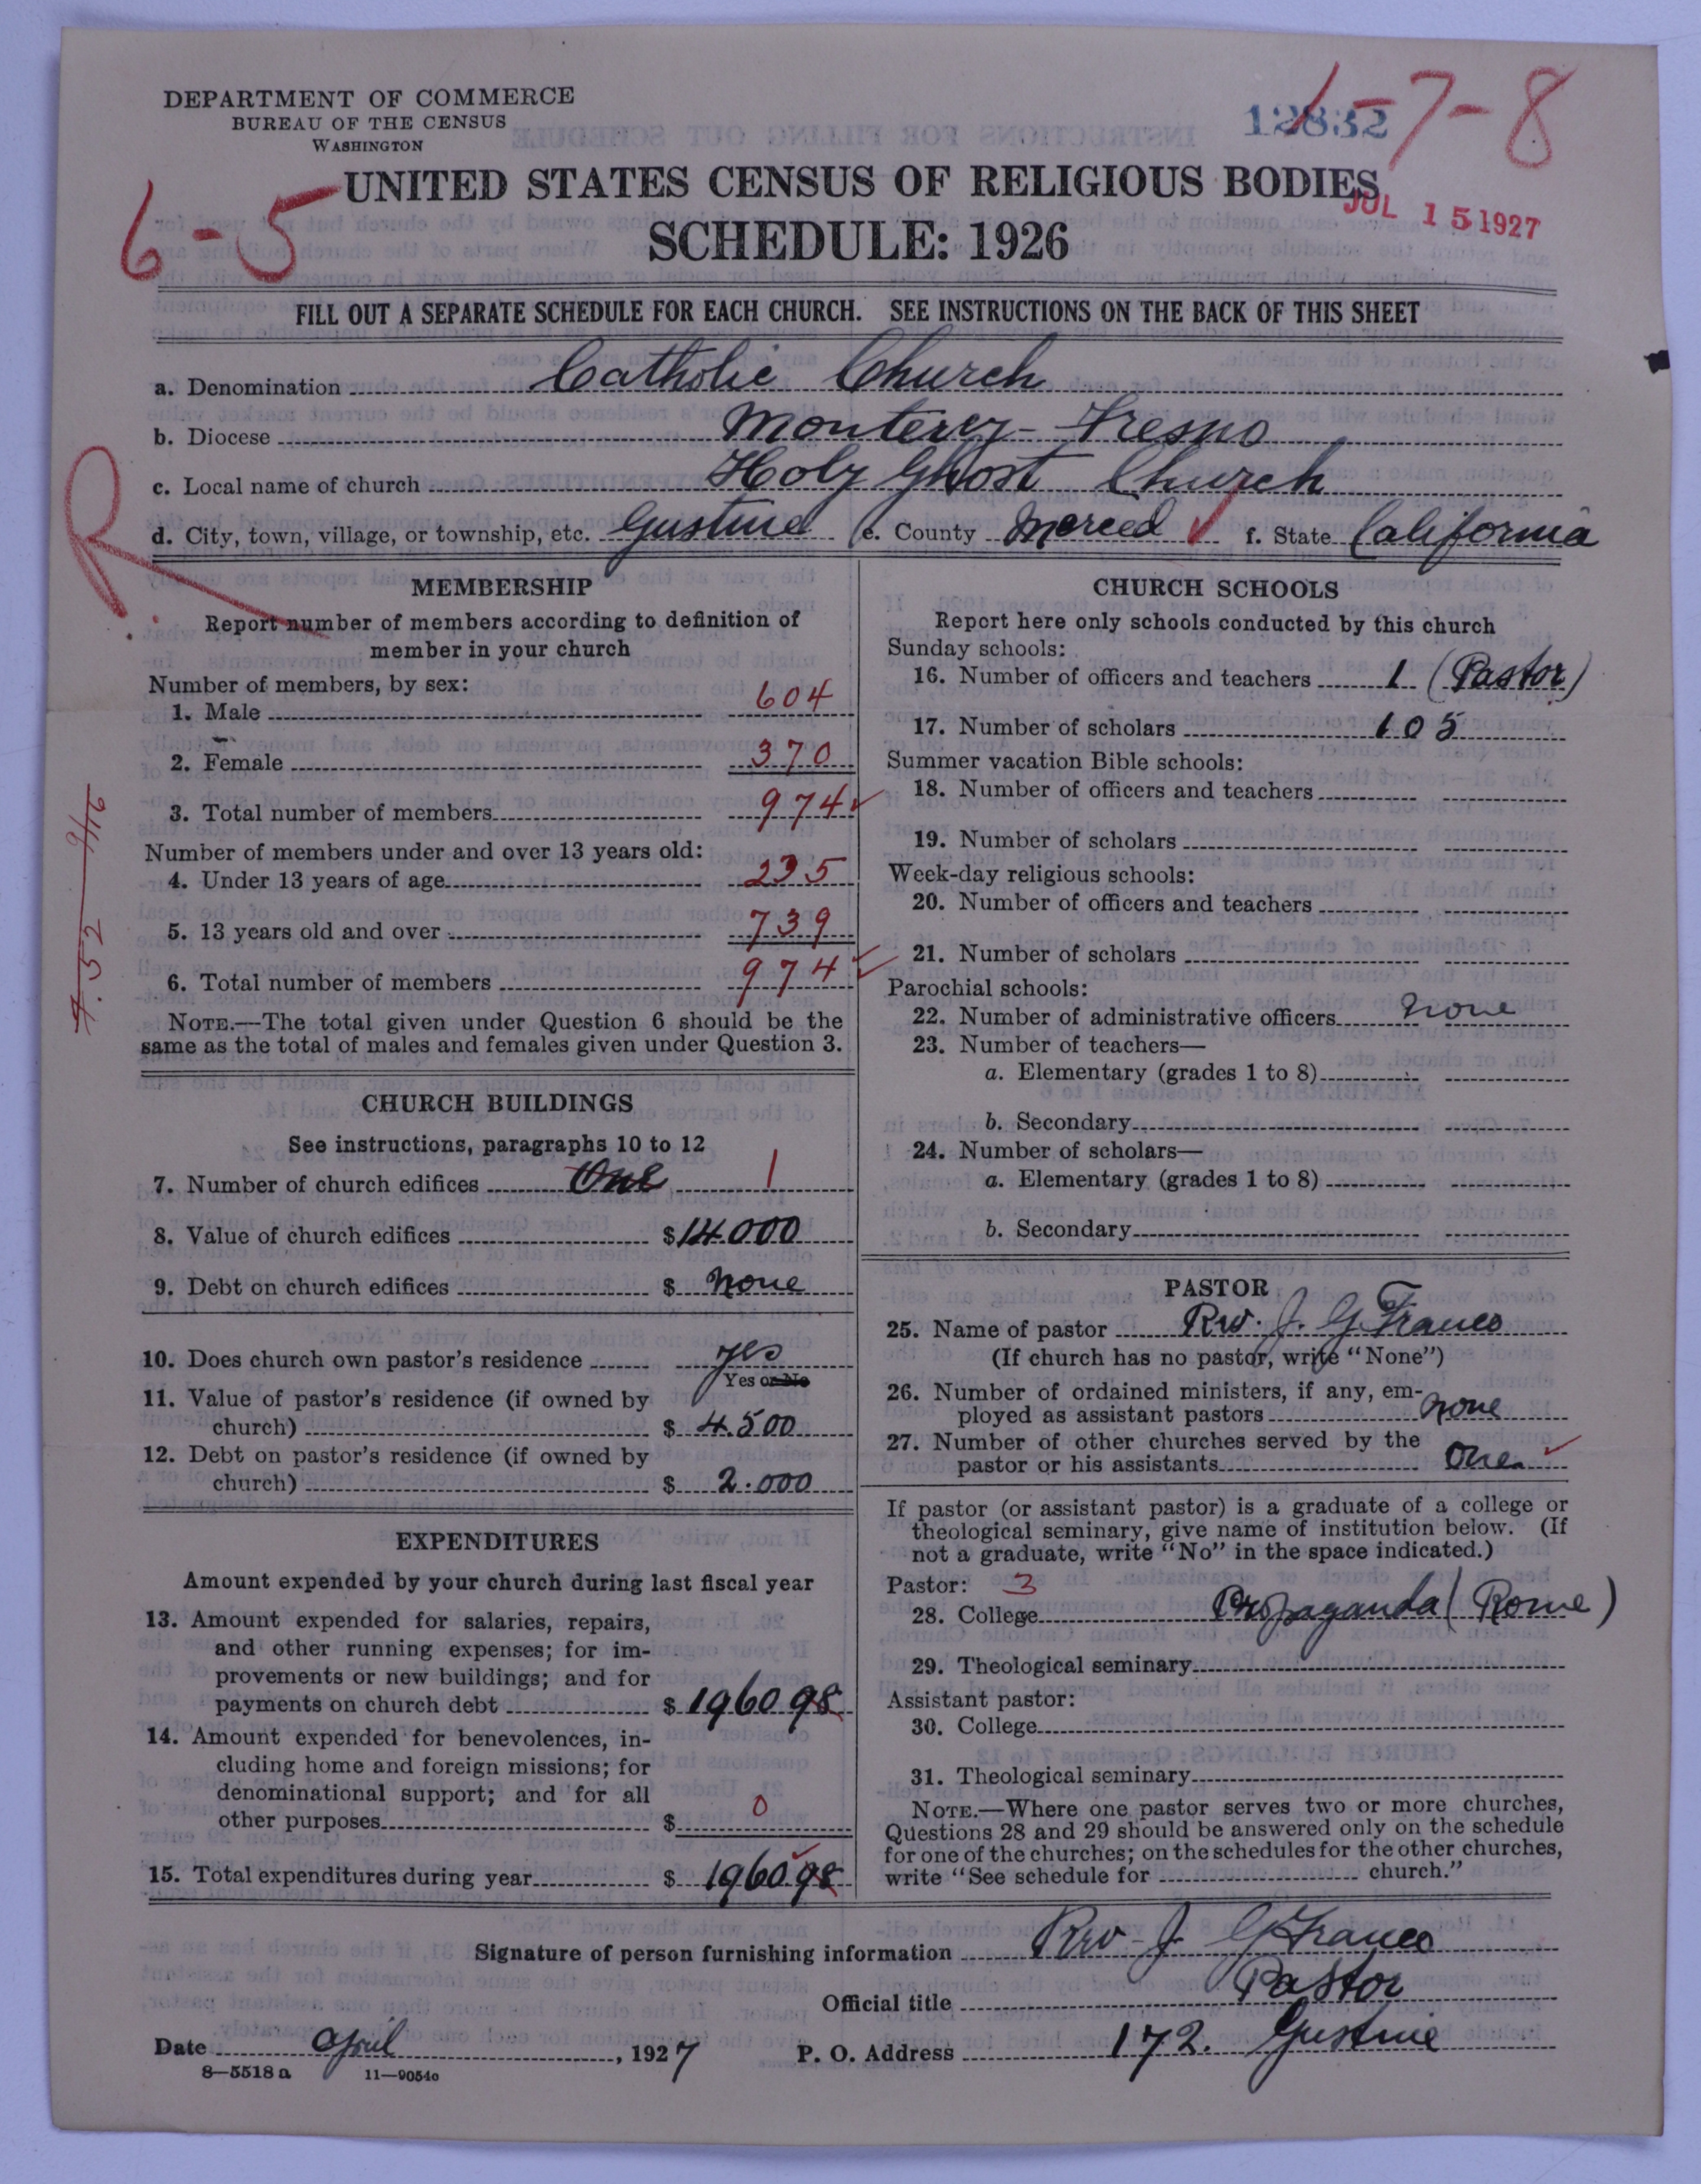 DEPARTMENT OF COMMERCE
BUREAU OF THE CENSUS
WASHINGTON
12832
1-7-8
6-5
UNITED STATES CENSUS OF RELIGIOUS BODIES
JUL 15 1927
SCHEDULE: 1926
FILL OUT A SEPARATE SCHEDULE FOR EACH CHURCH. SEE INSTRUCTIONS ON THE BACK OF THIS SHEET
a. Denomination Catholic Church
b. Diocese Monterey-Fresno
c. Local name of church Holy Ghost Church
d. City, town, village, or township, etc. Gustine e. County Merced ✓ f. State California
R
MEMBERSHIP
Report number of members according to definition of
member in your church
Number of members, by sex:
1. Male 604
2. Female 370
3. Total number of members 974 ✓
Number of members under and over 13 years old:
4. Under 13 years of age 235
5. 13 years old and over 739
6. Total number of members 974 ✓
NOTE.—The total given under Question 6 should be the
same as the total of males and females given under Question 3.
CHURCH BUILDINGS
See instructions, paragraphs 10 to 12
7. Number of church edifices One 1
8. Value of church edifices $ 14.000
9. Debt on church edifices $ None
10. Does church own pastor's residence yes
Yes or No
11. Value of pastor's residence (if owned by
church) $ 4.500
12. Debt on pastor's residence (if owned by
church) $ 2.000
EXPENDITURES
Amount expended by your church during last fiscal year
13. Amount expended for salaries, repairs,
and other running expenses; for im-
provements or new buildings; and for
payments on church debt $ 1960 98
14. Amount expended for benevolences, in-
cluding home and foreign missions; for
denominational support; and for all
other purposes $ 0
15. Total expenditures during year $ 1960.98
CHURCH SCHOOLS
Report here only schools conducted by this church
Sunday schools:
16. Number of officers and teachers 1 (Pastor)
17. Number of scholars 105
Summer vacation Bible schools:
18. Number of officers and teachers
19. Number of scholars
Week-day religious schools:
20. Number of officers and teachers
21. Number of scholars
Parochial schools:
22. Number of administrative officers none
23. Number of teachers—
a. Elementary (grades 1 to 8)
b. Secondary
24. Number of scholars—
a. Elementary (grades 1 to 8)
b. Secondary
PASTOR
25. Name of pastor Rev. J. G. Franco
(If church has no pastor, write "None")
26. Number of ordained ministers, if any, em-
ployed as assistant pastors none
27. Number of other churches served by the
pastor or his assistants One ✓
If pastor (or assistant pastor) is a graduate of a college or
theological seminary, give name of institution below. (If
not a graduate, write "No" in the space indicated.)
Pastor: 3
28. College Propaganda (Rome)
29. Theological seminary
Assistant pastor:
30. College
31. Theological seminary
NOTE.—Where one pastor serves two or more churches,
Questions 28 and 29 should be answered only on the schedule
for one of the churches; on the schedules for the other churches,
write "See schedule for church."
Signature of person furnishing information Rev J. G Franco
Official title Pastor
Date April, 1927 P. O. Address 172. Gustine
8—5518 a 11—9054o